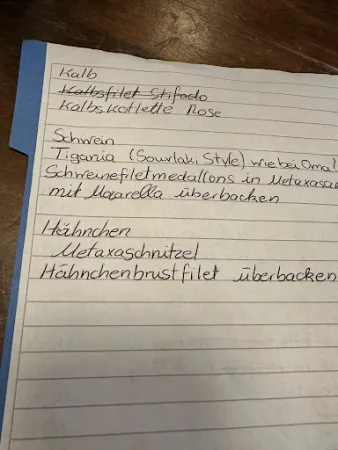 Kalb
Kalbsfilet Stifado
Kalbskottlette Rose
Schwein
Tigania (Souvlak. Style) wie bei Oma!
Schweinefiletmedallons in Metaxasae
mit Mozarella überbacken
Hähnchen
Metaxaschnitzel
Hähnchenbrustfilet überbacken